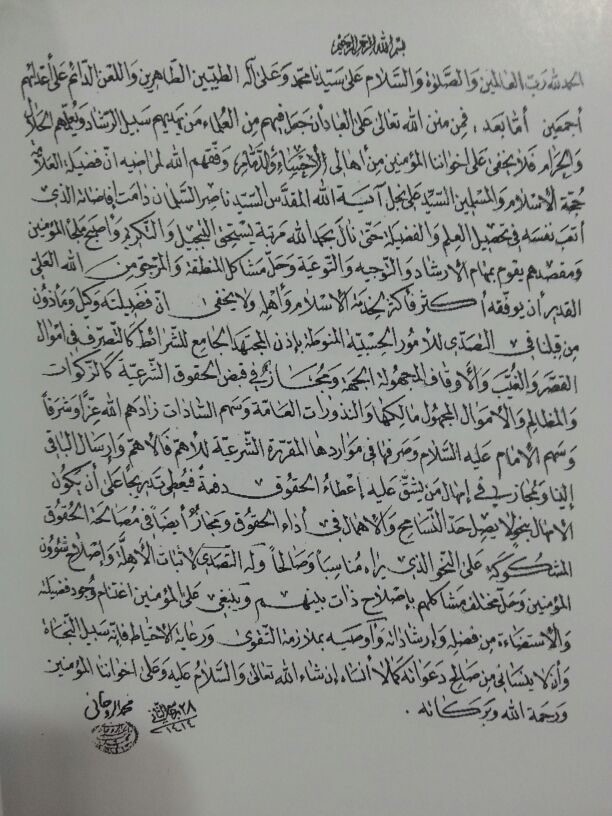 بسم الله الرحمن الرحيم
الحمد لله رب العالمين والصلوة والسلام على سيدنا محمد وعلى آله الطيبين الطاهرين واللعن الدائم على أعدائهم
أجمعين أما بعد، فمن منن الله تعالى على العباد أن جعل فيهم من العلماء من يهديهم سبيل الرشاد ويعلمهم الحلال
والحرام فلا يخفى على اخواننا المؤمنين من أهالى الأحساء والدمام وفقهم الله لمراضيه ان فضيلة العلامة
حجة الاسلام والمسلمين السيد على نجل آية الله المقدس السيد ناصر السلمان دامت إفاضاته الذى
أتعب نفسه فى تحصيل العلم والفضيلة حتى نال بحمد الله مرتبة يستحق التبجيل والتكريم وأصبح ملجأ المؤمنين
ومقصدهم يقوم بمهام الارشاد والتوجيه والتوعية وحل مشاكل المنطقة والمرجو من الله العلى
القدير أن يوفقه أكثر فأكثر لخدمة الاسلام وأهله ولا يخفى ان فضيلته وكيل ومأذون
من قبلنا فى التصدى للأمور الحسبية المنوطة بإذن المجتهد الجامع للشرائط كالتصرف فى اموال
القصر والغيب والأوقاف المجهولة الجهة ومجاز فى قبض الحقوق الشرعية كالزكوات
والمظالم والأموال المجهول مالكها والنذورات العامة وسهم السادات زادهم الله عزا وشرفا
وسهم الامام عليه السلام وصرفها فى مواردها المقررة الشرعية للأهم فالأهم وإرسال الباقى
إلينا ومجاز فى إمهال من يشق عليه إعطاء الحقوق دفعة فيعطى تدريجا على أن يكون
الامهال بنحو لا يصل حد التسامح والاهمال فى أداء الحقوق ومجاز أيضا فى مصالحة الحقوق
المشكوكة على النحو الذى يراه مناسبا وصالحا وله التصدى لاثبات الأهلة وإصلاح شؤون
المؤمنين وحل مختلف مشاكلهم بإصلاح ذات بينهم وينبغى على المؤمنين اغتنام وجود فضيلته
والأستضاءة من فضله وإرشاداته وأوصيه بملازمة التقوى ورعاية الاحتياط فإنه سبيل النجاة
وأن لا ينسانى من صالح دعواته كما لا أنساه إن شاء الله تعالى والسلام عليه وعلى اخواننا المؤمنين
ورحمة الله وبركاته .
٢٨
١٤١٤
محمد الروحانى